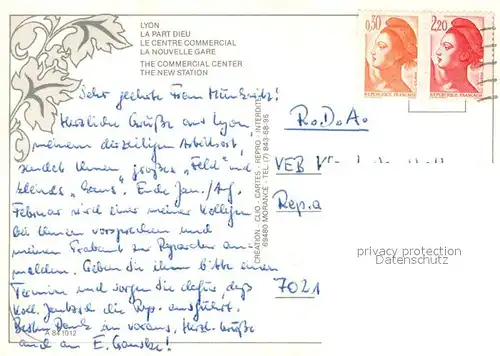 LYON
LA PART DIEU
LE CENTRE COMMERCIAL
LA NOUVELLE GARE
THE COMMERCIAL CENTER
THE NEW STATION
0,30
2,20
REPUBLIQUE FRANÇAISE
REPUBLIQUE FRANÇAISE
Sehr geehrte Frau
Herzliche Grüße aus Lyon,
meinem derzeitigen Arbeitsort,
sendet Ihnen "großes Feld" und
"Gans". Ende Jan./Anf.
Februar wird einer meiner Kollegen
bei Ihnen vorsprechen und
meinen Trabant zur Reparatur an-
melden. Geben Sie ihm bitte einen
Termin und sorgen Sie dafür, daß
Koll. die Rep. ausführt.
Besten Dank im voraus, Herzl. Grüße
auch an E.
R.o.D.A.
VEB
Rep.a
7021
CREATION CLIO - CARTES - REPRO - INTERDITE
69480 MORANCE - TEL. (7) 843-68-95
A 84 1012
privacy protection
Datenschutz